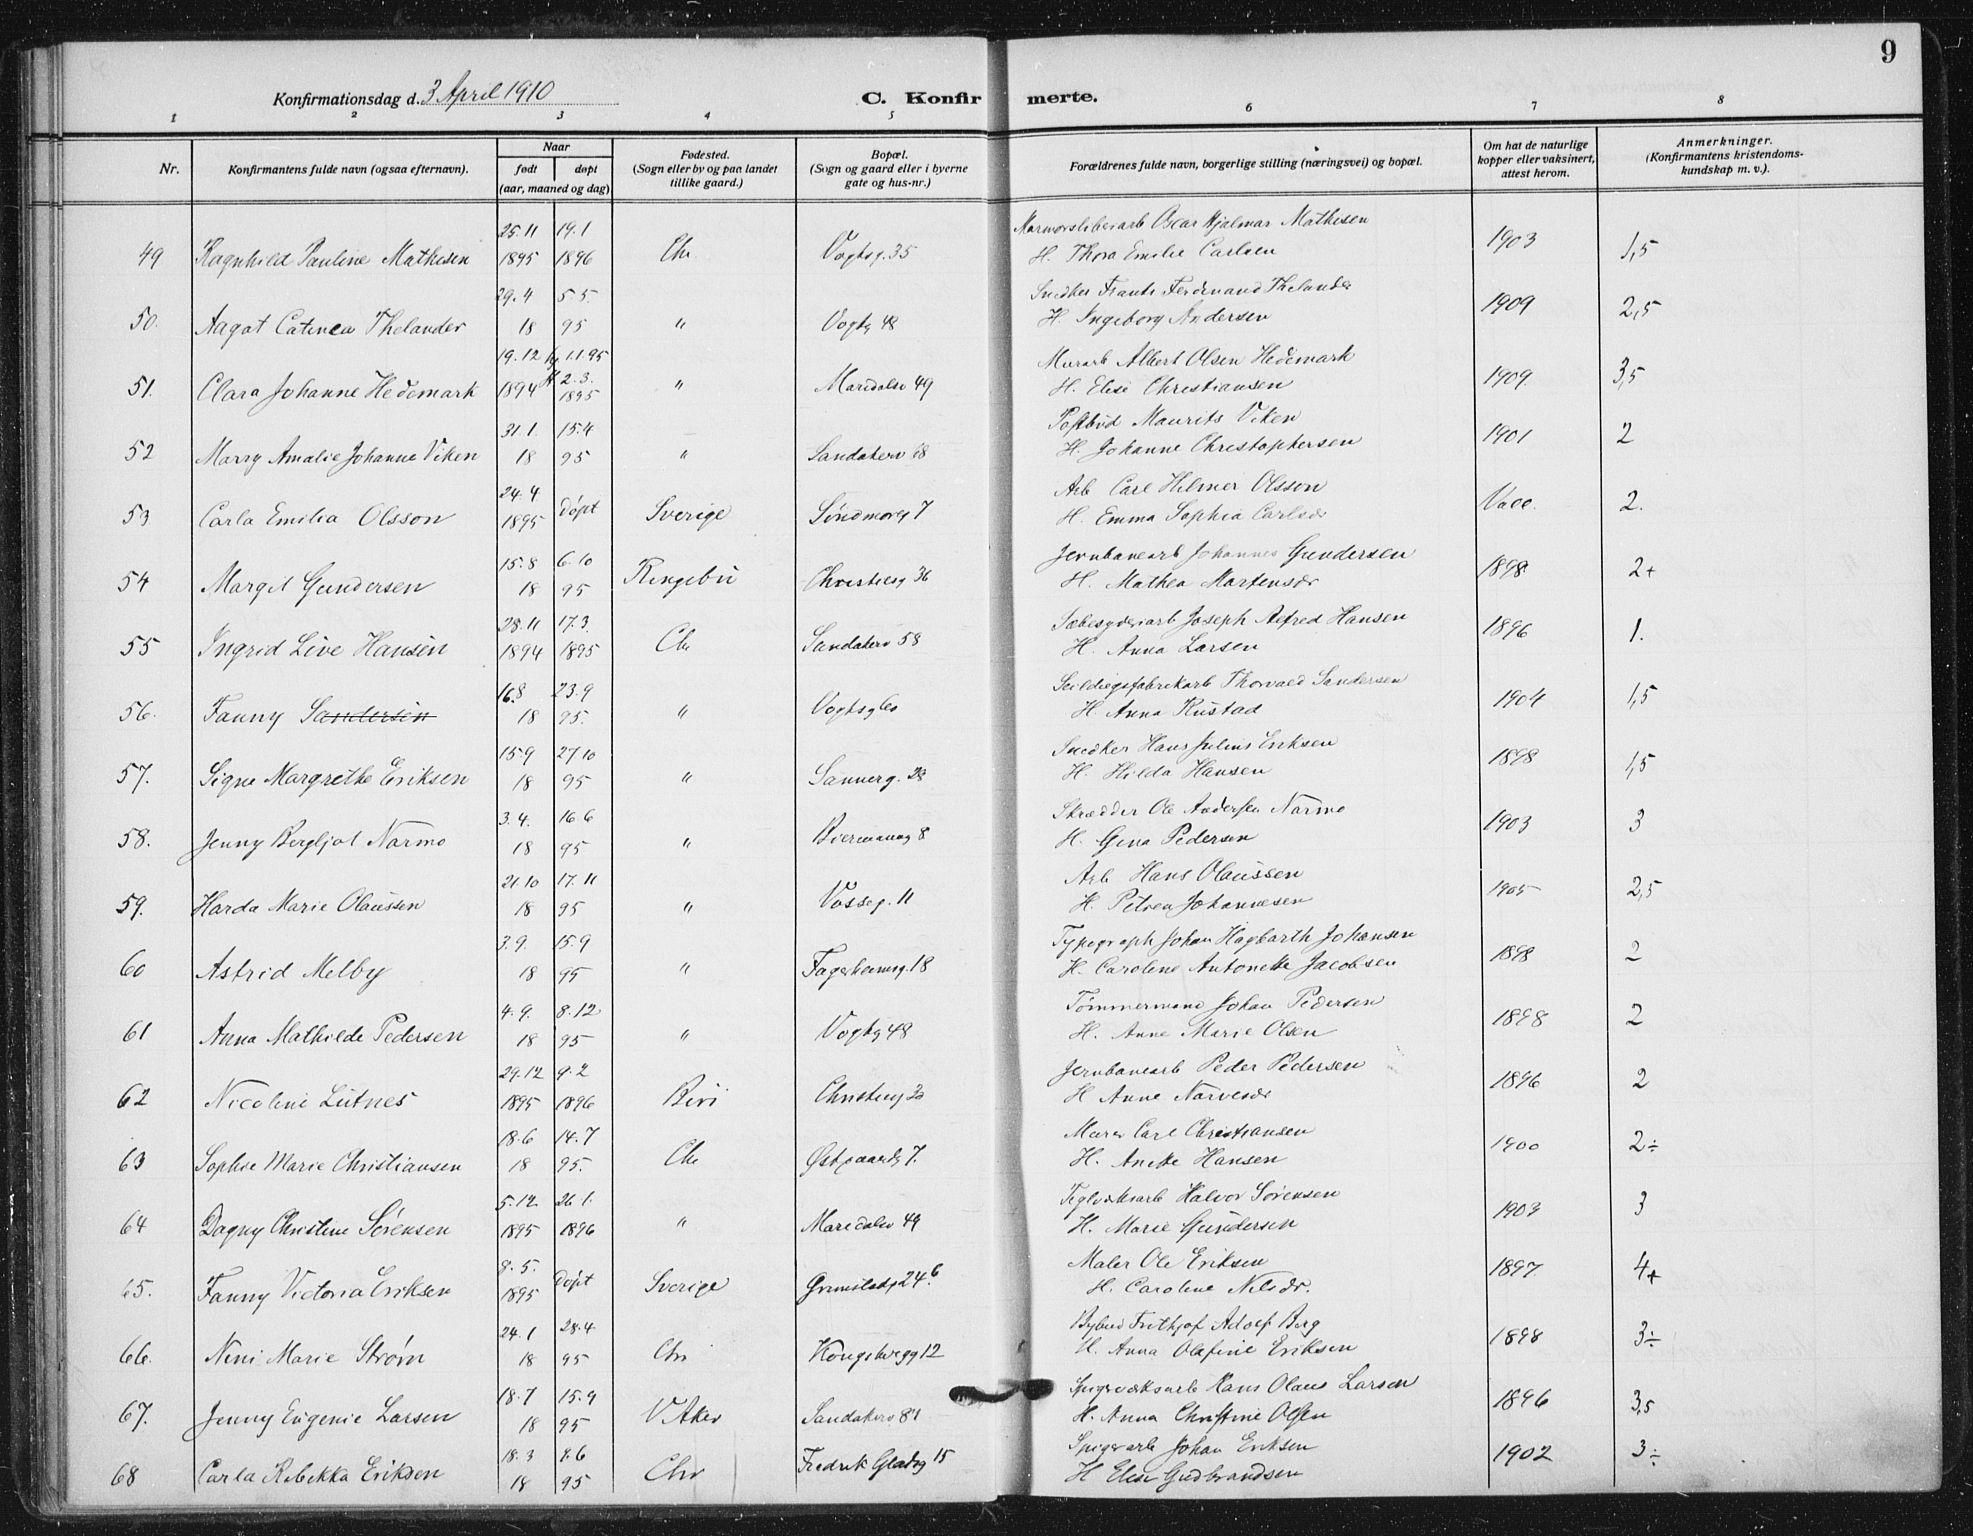 9
Konfirmationsdag d. 3 April 1910
C. Konfirmerte.
1 2 3 4 5 6 7 8
Nr.
Konfirmantens fulde navn (ogsaa efternavn).
Naar
født døpt
(aar, maaned og dag)
Fødested.
(Sogn eller by og paa landet
tillike gaard.)
Bopæl.
(Sogn og gaard eller i byerne
gate og hus-nr.)
Forældrenes fulde navn, borgerlige stilling (næringsvei) og bopæl.
Om hat de naturlige
kopper eller vaksinert,
attest herom.
Anmerkninger.
(Konfirmantens kristendoms-
kundskap m. v.).
25.11 19.1 Marmorsliberiarb Oscar Hjalmar Mathisen
49 Ragnhild Pauline Mathisen 1895 1896 Chr Vogtsg. 35 H. Thora Emilie Carlsen 1903 1,5
29.4 5.5. Snedker Frants Ferdinand Thelander
50. Aagot Catinca Thelander 18 95 " Vogtg 48 H. Ingeborg Andersen 1909 2,5
19.12 1.1.95 Murarb Albert Olsen Hedemark
51. Clara Johanne Hedemark 1894 2.3. 1895 " Maridalsv 49 H. Elise Christiansen 1909. 3,5
31.1. 15.4 Postbud Maurits Viken
52 Marry Amalie Johanne Viken 18 95 " Sandakerv H. Johanne Christophersen 1901 2
24.4 Arb Carl Hilmer Olsson
53 Carla Emilia Olsson 1895 døpt Sverige Søndmørg 7 H. Emma Sophia Carlsdr Vacc. 2.
15.8 6.10 Jernbanearb Johannes Gundersen
54 Margit Gundersen 18 95 Ringebu Christiesg 36 H. Mathea Martensdr 1898 2+
28.11 17.3. Sæbesyderiarb Joseph Alfred Hansen
55 Ingrid Live Hansen 1894 1895 Chr Sandakerv 58 H. Anna Larsen 1896 1.
16.8 23.9 Seildugsfabrikarb Thorvald Sandersen
56. Fanny Sandersen 18 95. " H. Anna Rustad 1904 1,5
15.9 27.10 Snedker Hans Julius Eriksen
57. Signe Margrethe Eriksen 18 95 " Sannerg. 28 H. Hilda Hansen 1898 1,5
3.4. 16.6 Skrædder Ole Andersen Narmo
58. Jenny Bergljot Narmo 18 95 " Biermannsg 8 H. Gina Pedersen 1903 3
21.10 17.11 Arb Hans Olaussen
59. Harda Marie Olaussen 18 95 " Vosseg. 11 H. Petrea Johannesen 1905 2,5
3.9. 15.9 Typograph Johan Hagbarth Johansen
60 Astrid Melby 18 95 " Fagerheimsg. 18 H. Caroline Antonette Jacobsen 1898 2
4.9. 8.12 Tømmermand Johan Pedersen
61 Anna Mathilde Pedersen 18 95 " Vogtg 48 H. Anne Marie Olsen 1898 2
29.12 9.2 Jernbanearb Peder Pedersen
62 Nicoline Lutnes 1895 1896 Biri Christiesg H Anne Narvesdr 1896 2
18.6 14.7 Murer Carl Christiansen
63 Sophie Marie Christiansen 18 95. Chr Østgaardsg 7. H. Anette Hansen 1900 2÷
5.12 26.1. Teglverksarb Halvor Sørensen
64 Dagny Christine Sørensen 1895 1896 " Maridalsv 49 H. Marie Gundersen 1903 3
8.5. Maler Ole Eriksen
65. Fanny Victoria Eriksen 1895 Døpt Sverige Grimstadg 24 b H. Caroline Nilsdr. 1897. 4+
24.1 28.4 Bybud Frithjof Adolf Berg
66. Nini Marie Strøm 18 95 Chr Kongsbergg 12 H. Anna Olefine Eriksen 1898 3÷
18.7 15.9 Spigerverksarb Hans Olaus Larsen
67. Jenny Eugenie Larsen 18 95 V Aker Sandakerv 81 H. Anna Christine Olsen 1896 3,5
18.3 Spigerarb Johan Eriksen
68 Carla Rebekka Eriksen 18 95 Chr Fredrik Gladsg 15 H Elise Gudbrandsen 1902 3÷